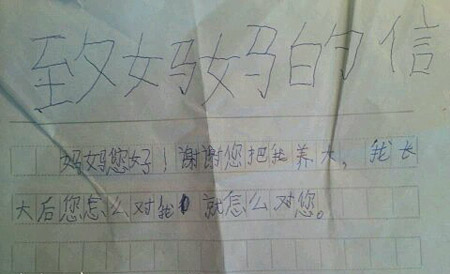 致女妈妈的信
妈妈您好！谢谢您把我养大，我长
大后您怎么对我就怎么对您。